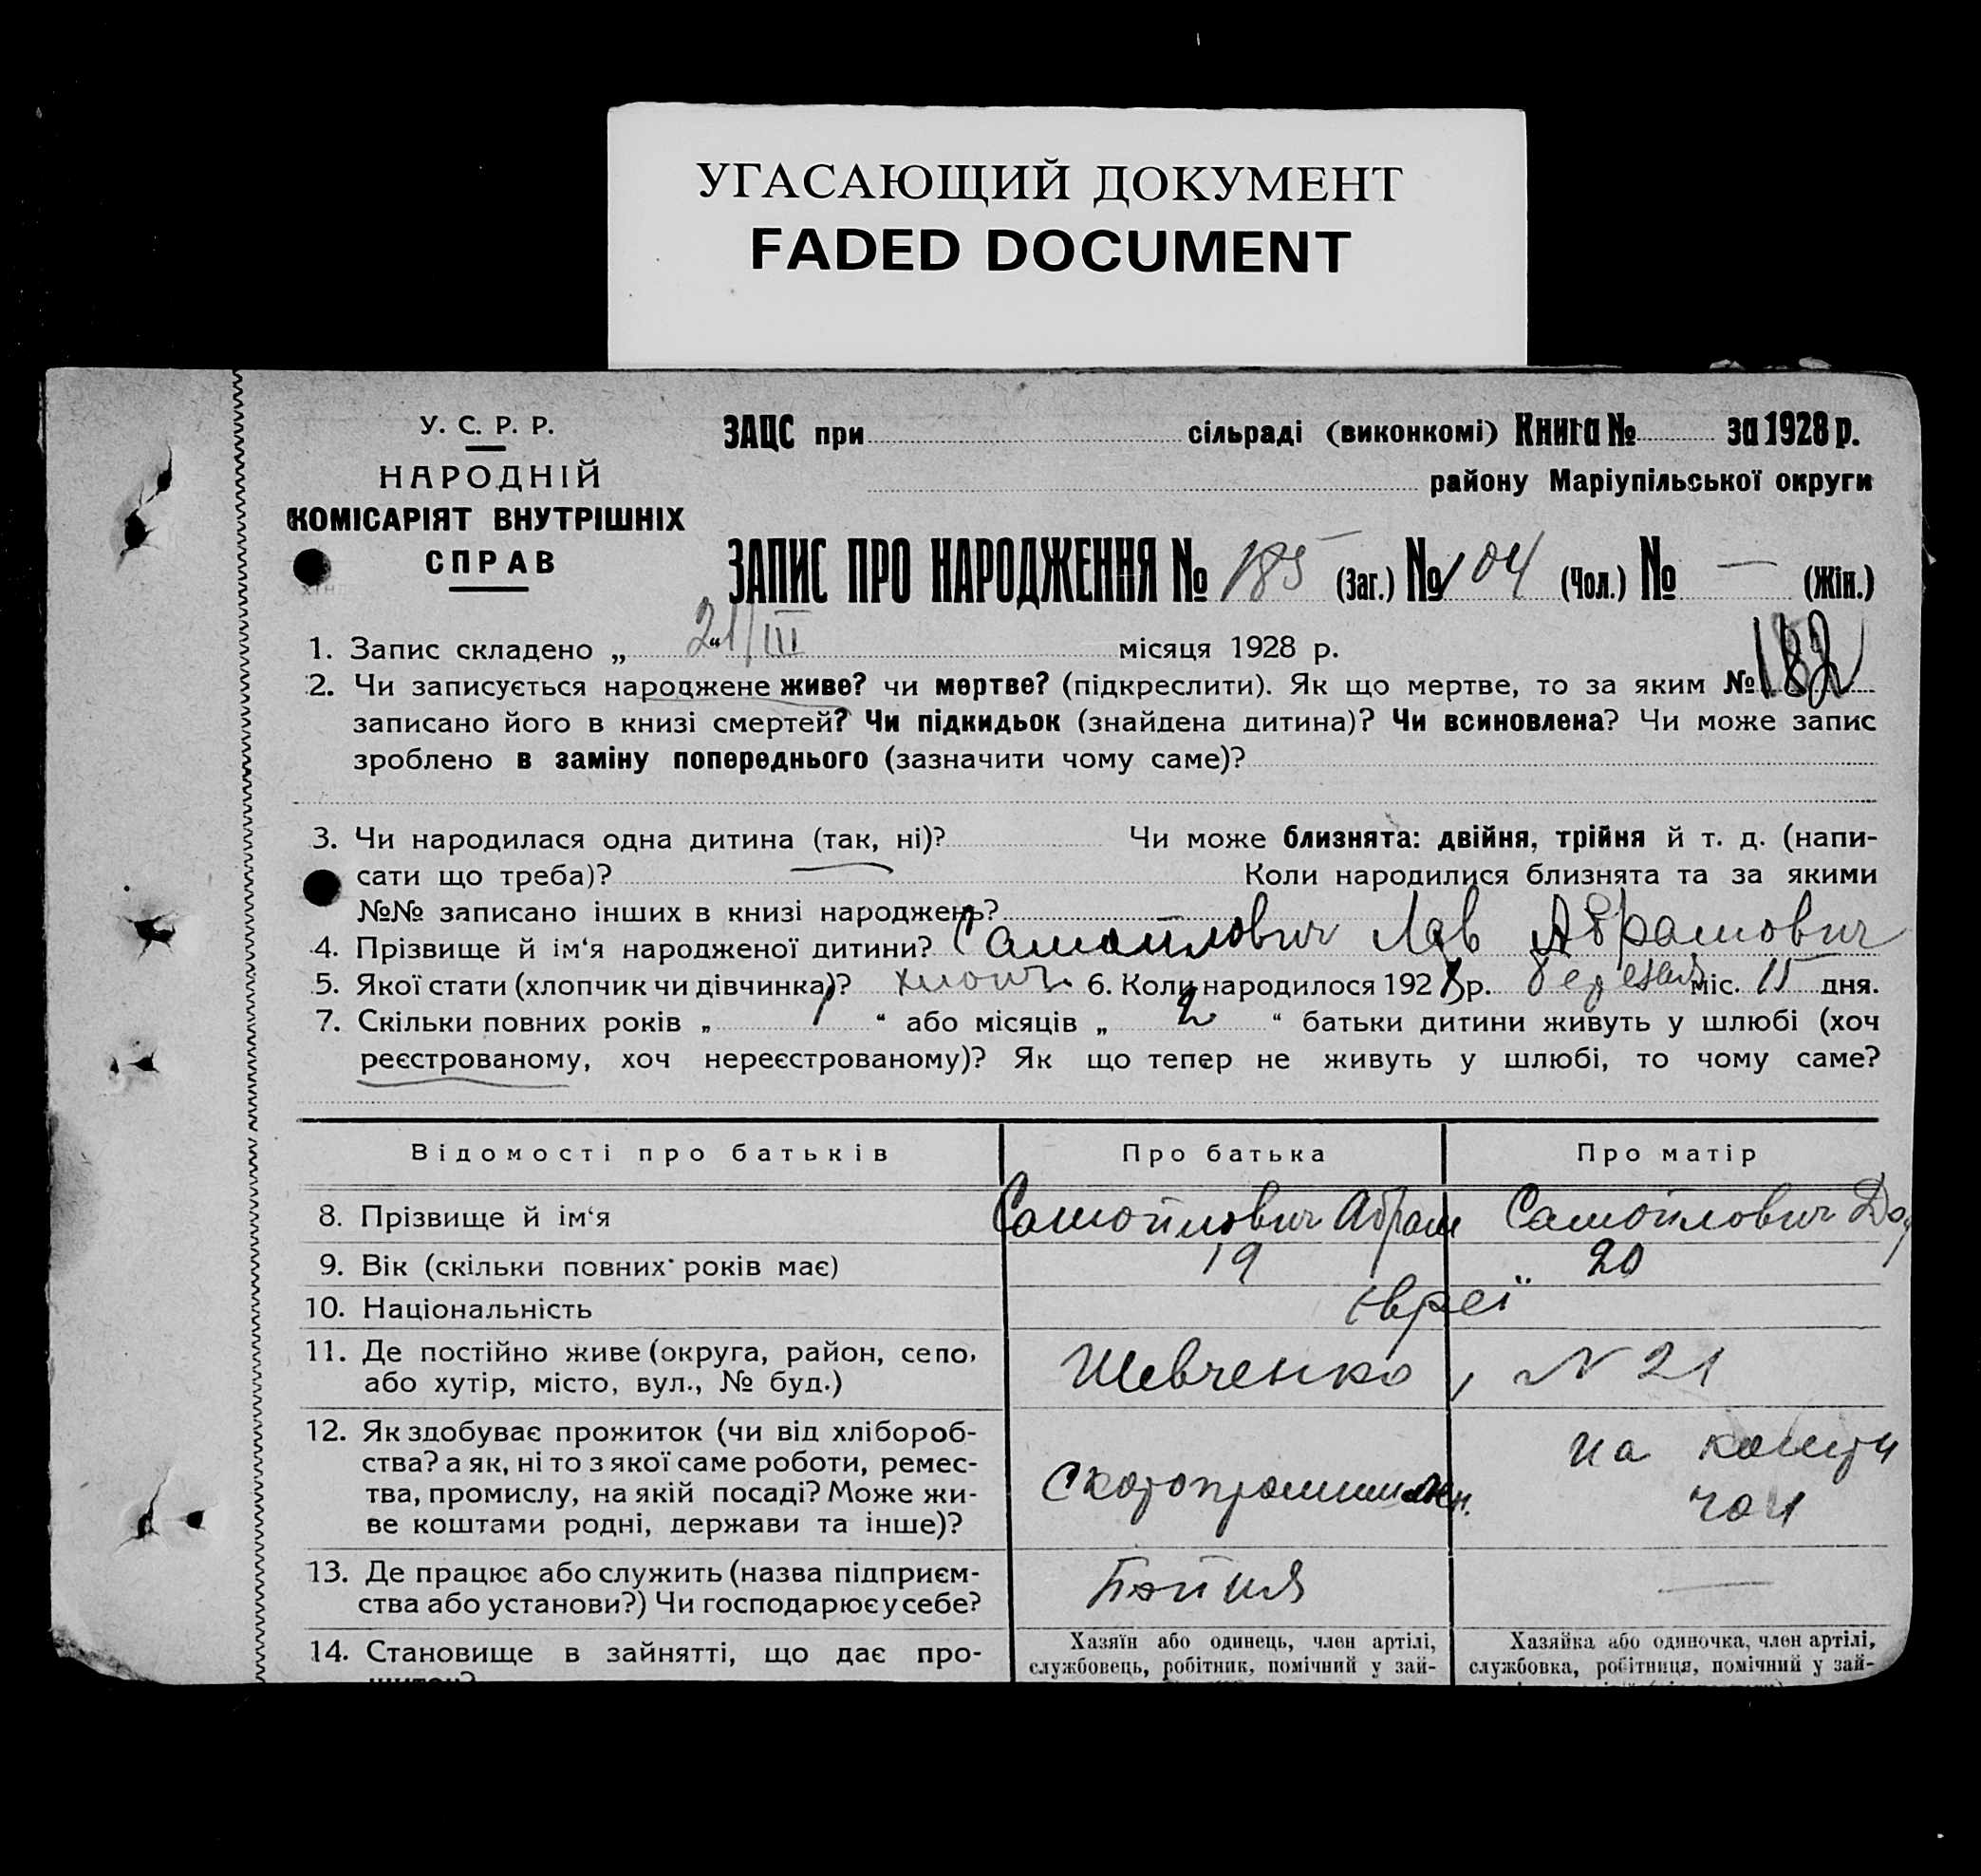 УГАСАЮЩИЙ ДОКУМЕНТ
FADED DOCUMENT
У. С. Р. Р.
НАРОДНІЙ
КОМІСАРІЯТ ВНУТРІШНІХ
СПРАВ
ЗАЦС при сільраді (виконкомі) Книга № за 1928 р.
району Маріупільської округи
ЗАПИС ПРО НАРОДЖЕННЯ № 185 (Заг.) № 104 (Чол.) № — (Жін.)
1. Запис складено „ 21/III “ місяця 1928 р.
182
2. Чи записується народжене живе? чи мертве? (підкреслити). Як що мертве, то за яким №
записано його в книзі смертей? Чи підкидьок (знайдена дитина)? Чи всиновлена? Чи може запис
зроблено в заміну попереднього (зазначити чому саме)?
3. Чи народилася одна дитина (так, ні)? Чи може близнята: двійня, трійня й т. д. (напи-
сати що треба)? Коли народилися близнята та за якими
№№ записано інших в книзі народжень?
4. Прізвище й ім‘я народженої дитини? Самойлович Лев Абрамович
5. Якої стати (хлопчик чи дівчинка)? хлопч. 6. Коли народилося 1928 р. березня міс. 15 дня.
7. Скільки повних років „ 1 “ або місяців „ 2 “ батьки дитини живуть у шлюбі (хоч
реєстрованому, хоч нереєстрованому)? Як що тепер не живуть у шлюбі, то чому саме?
Відомості про батьків Про батька Про матір
8. Прізвище й ім‘я Самойлович Абрам Самойлович
9. Вік (скільки повних років має) 19 20
10. Національність євреї
11. Де постійно живе (округа, район, село,
або хутір, місто, вул., № буд.) Шевченко, N 21
12. Як здобуває прожиток (чи від хлібороб-
ства? а як, ні то з якої саме роботи, ремес-
тва, промислу, на якій посаді? Може жи-
ве коштами родні, держави та інше)?
Скотопромишлен. на кошти
чол
13. Де працює або служить (назва підприєм-
ства або установи?) Чи господарює у себе? —
14. Становище в зайнятті, що дає про-
житок?
Хазяїн або одинець, член артілі,
службовець, робітник, помічний у зай-
Хазяйка або одиночка, член артілі,
службовка, робітниця, помічний у зай-